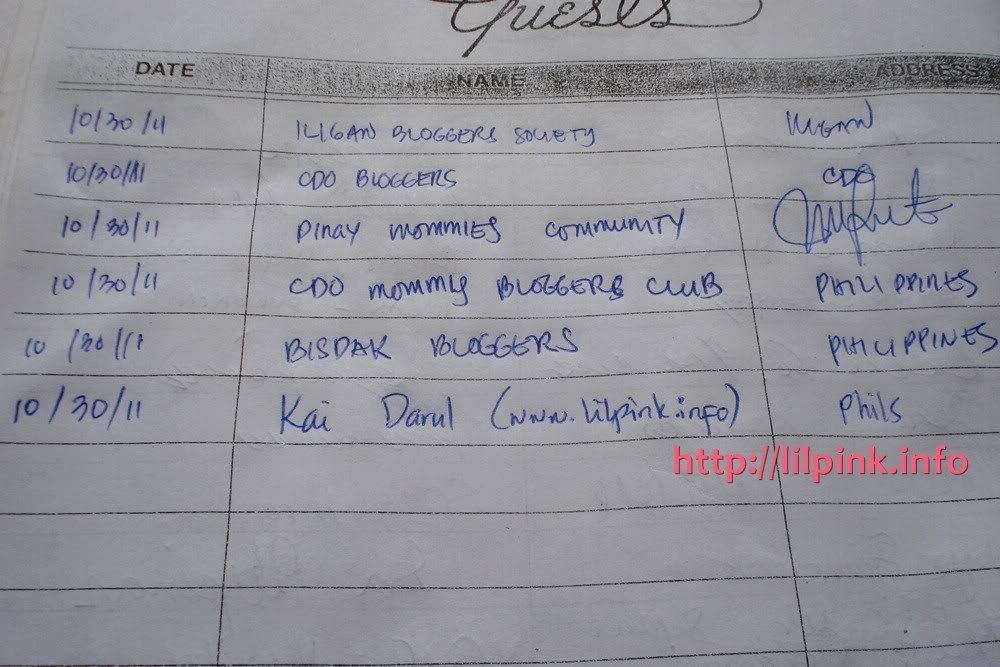 Guests
DATE NAME ADDRESS
10/30/11 ILIGAN BLOGGERS SOCIETY ILIGAN
10/30/11 CDO BLOGGERS CDO
10/30/11 PINAY MOMMIES COMMUNITY
10/30/11 CDO MOMMY BLOGGERS CLUB PHILIPPINES
10/30/11 BISDAK BLOGGERS PHILIPPINES
10/30/11 Kai Darul (www.lilpink.info) Phils
http://lilpink.info